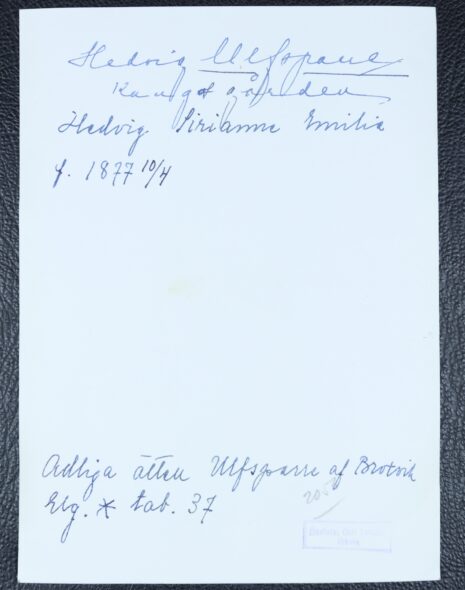 Hedvig Ulfsparre
Kungsgården
Hedvig Sirianne Emilia
f. 1877 10/4
Adliga ätten Ulfsparre af Broxvik
Elg. * tab. 37